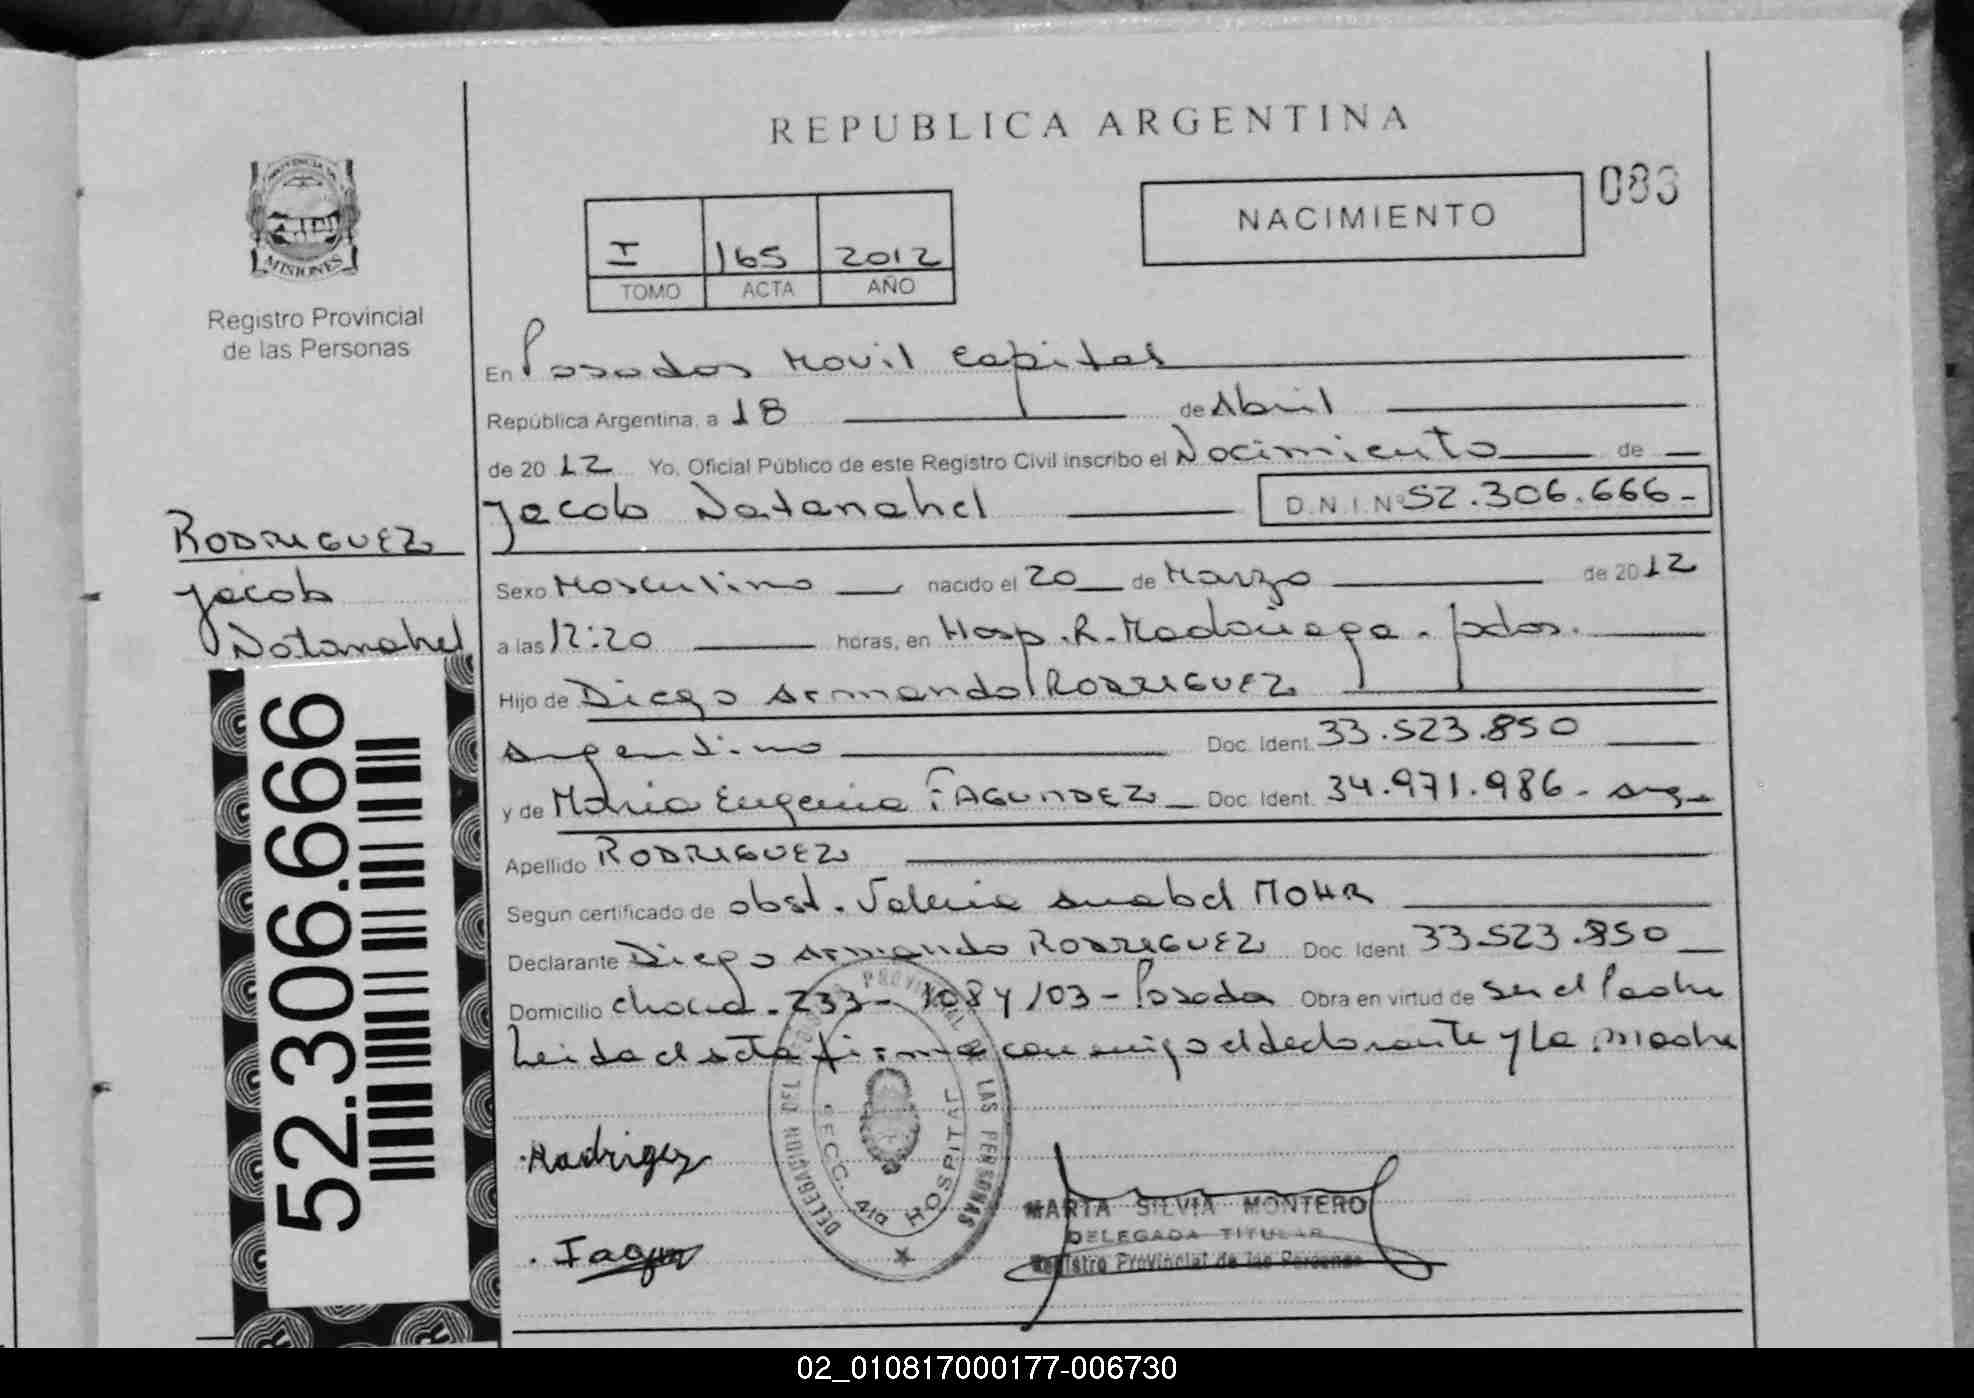 REPUBLICA ARGENTINA
PROVINCIA DE
MISIONES
Registro Provincial
de las Personas
I 165 2012
TOMO ACTA AÑO
NACIMIENTO
083
En Posadas Movil Capital
República Argentina, a 18 de Abril
de 2012 Yo, Oficial Público de este Registro Civil inscribo el Nacimiento de
Jacob Natanahel D.N.I.Nº 52.306.666-
RODRIGUEZ
Jacob
Natanahel
52.306.666
Sexo Masculino nacido el 20 de Marzo de 2012
a las 12:20 horas, en Hosp. R. Madariaga. pdas.
Hijo de Diego Armando RODRIGUEZ
Argentino Doc. Ident. 33.523.850
y de Maria Eugenia FAGUNDEZ Doc. Ident. 34.971.986- arg.
Apellido RODRIGUEZ
Segun certificado de obst. Valeria Anabel MOHR
Declarante Diego Armando RODRIGUEZ Doc. Ident. 33.523.850
Domicilio chacra. 233- 108 y 103 - Posadas Obra en virtud de ser el Padre
Leida el acta firma conmigo el declarante y la madre
DELEGACION DEL REGISTRO PROVINCIAL DE LAS PERSONAS
SECC. 4ta HOSPITAL
MARTA SILVIA MONTERO
DELEGADA TITULAR
Registro Provincial de las Personas
02_010817000177-006730